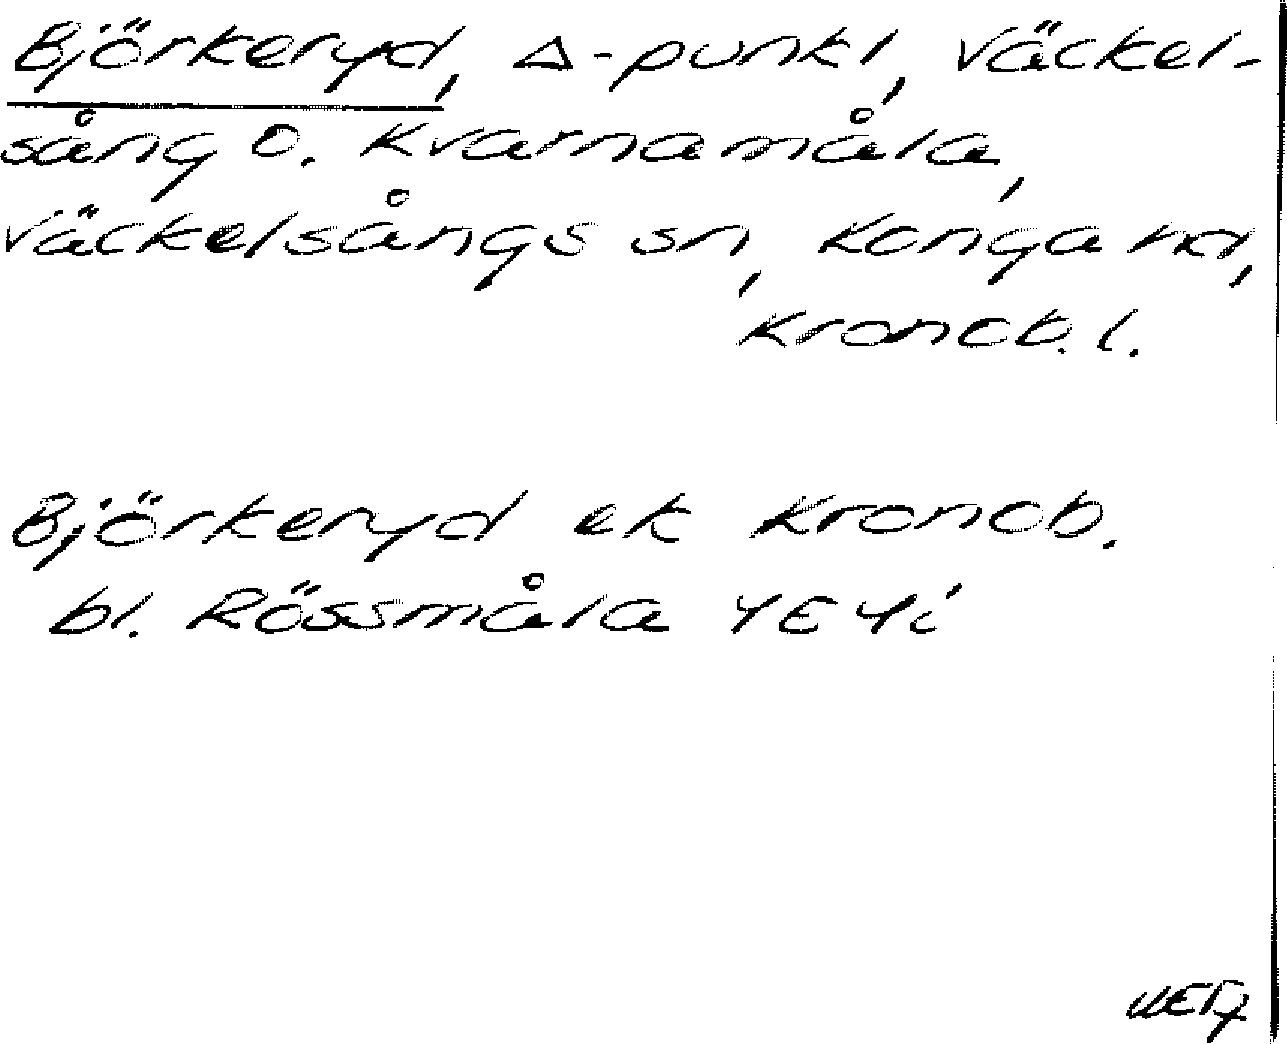 Björkeryd, Δ-punkt, Väckel-
sång O. Kvarnamåla,
Väckelsångs sn, Konga hd,
Kronob. l.
Björkeryd ek Kronob.
bl. Rössmåla 4E4i